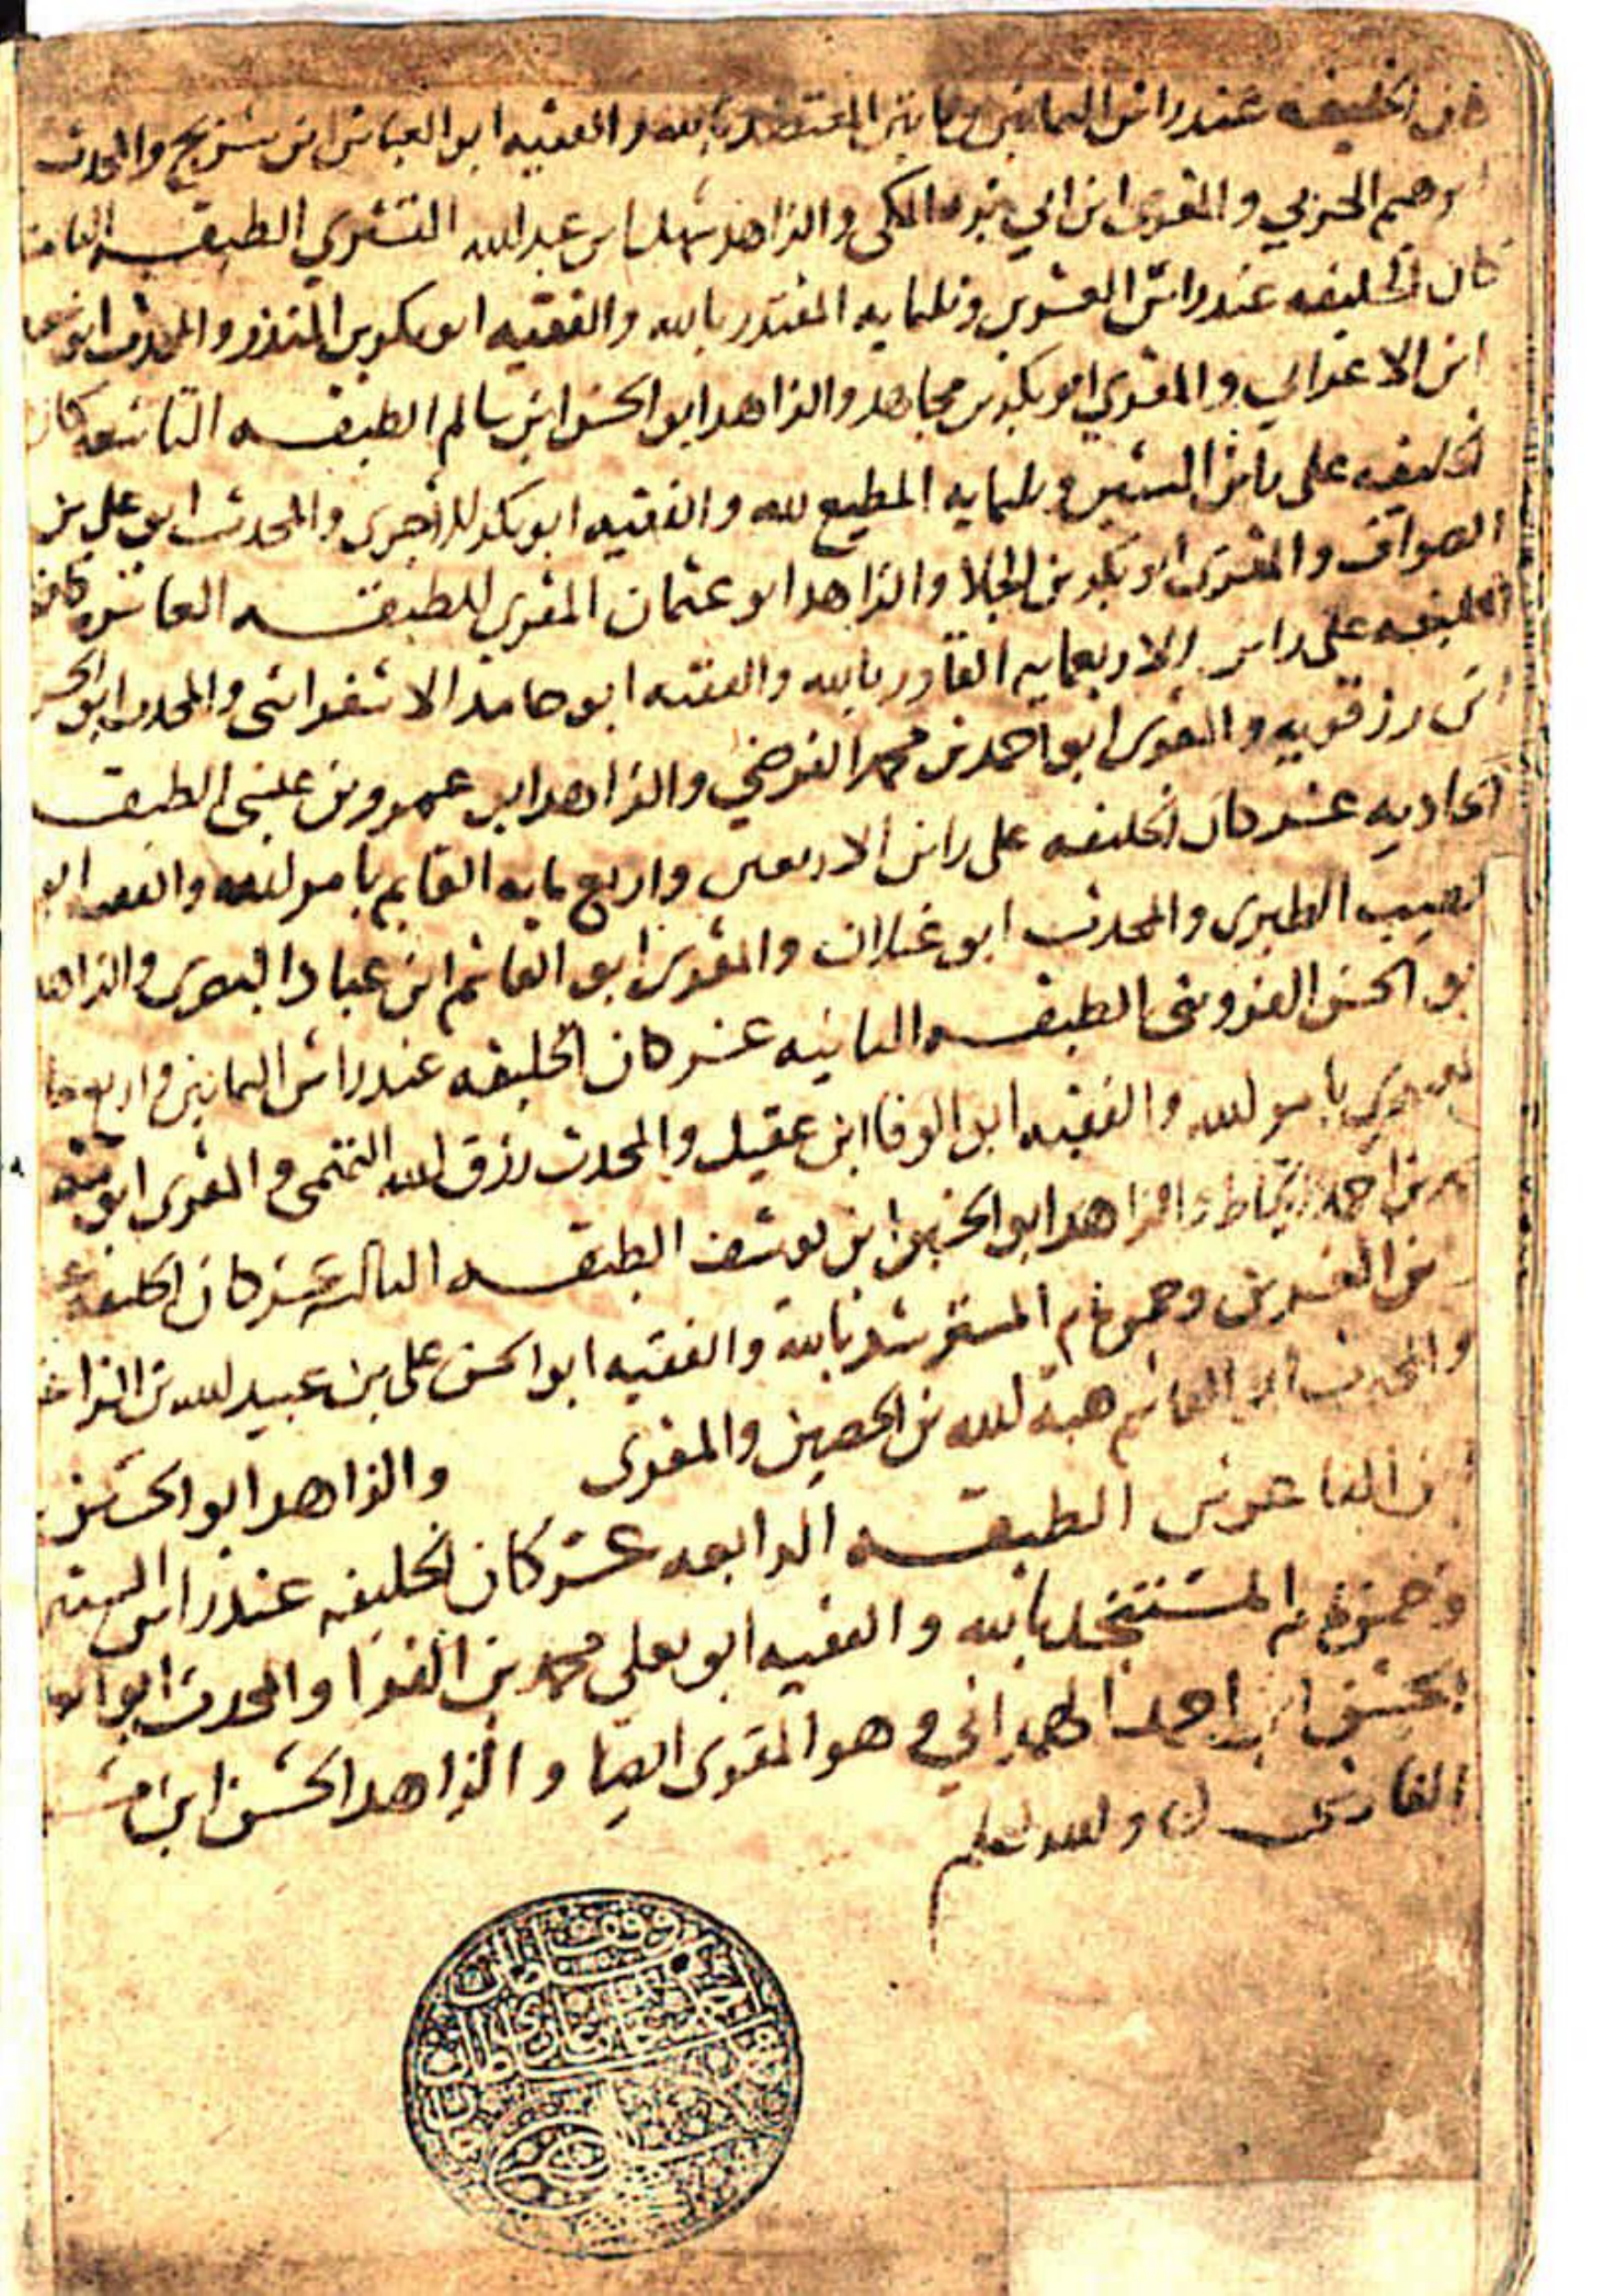 كان الخليفه عند راس الثمانين ومايتين المعتضد بالله والفقيه ابو العباس ابن سريج والمحدث
ابرهيم الحربي والمقرى ابن ابي بزه المكى والزاهد سهل ابن عبد الله التستري الطبقه الثامنه
كان الخليفه عند راس العشرين وثلثمايه المقتدر بالله والفقيه ابو بكر بن المنذر والمحدث ابو
ابن الاعرابي والمقري ابو بكر بن مجاهد والزاهد ابو الحسن ابن سالم الطبقه التاسعه كان
الخليفه على راس الستين وثلثمايه المطيع لله والفقيه ابو بكر الاجرى والمحدث ابو علي بن
الصواف والمقرى ابو بكر بن الجلا والزاهد ابو عثمان المغربي الطبقه العاشره كان
الخليفه على راس الاربعمايه القادر بالله والفقيه ابو حامد الاسفراسى والمحدث ابو الحسن
ابن رزقويه والمقرى ابو احمد بن محمد الفرضي والزاهد ابو عمرو بن علي الطبقه
الحاديه عشر كان الخليفه على راس الاربعين واربع مايه القايم بامر الله والفقيه ابو
الطيب الطبري والمحدث ابو غيلان والمقرى ابو القاسم ابن عباد البصرى والزاهد
ابو الحسن القزويني الطبقه الثانيه عشر كان الخليفه عند راس الثمانين واربع مايه
المقتدي بامر الله والفقيه ابو الوفا ابن عقيل والمحدث رزق الله التميمى والمقرى ابو منصور
محمد بن احمد الخياط والزاهد ابو الحسن ابن يوسف الطبقه الثالثه عشر كان الخليفه
العشرين وخمس مايه المسترشد بالله والفقيه ابو الحسن على بن عبيد الله بن الزاغوني
والمحدث ابو القاسم هبة الله بن الحصين والمقرى والزاهد ابو الحسن
ابن الفاعوس الطبقه الرابعه عشر كان الخليفه عند راس الستين
وخمس مايه المستنجد بالله والفقيه ابو يعلي محمد بن الفرا والمحدث ابو العلا
الحسن ابن احمد الهمداني وهو المقرى ايضا والزاهد الحسن ابن
الفارسى والله اعلم